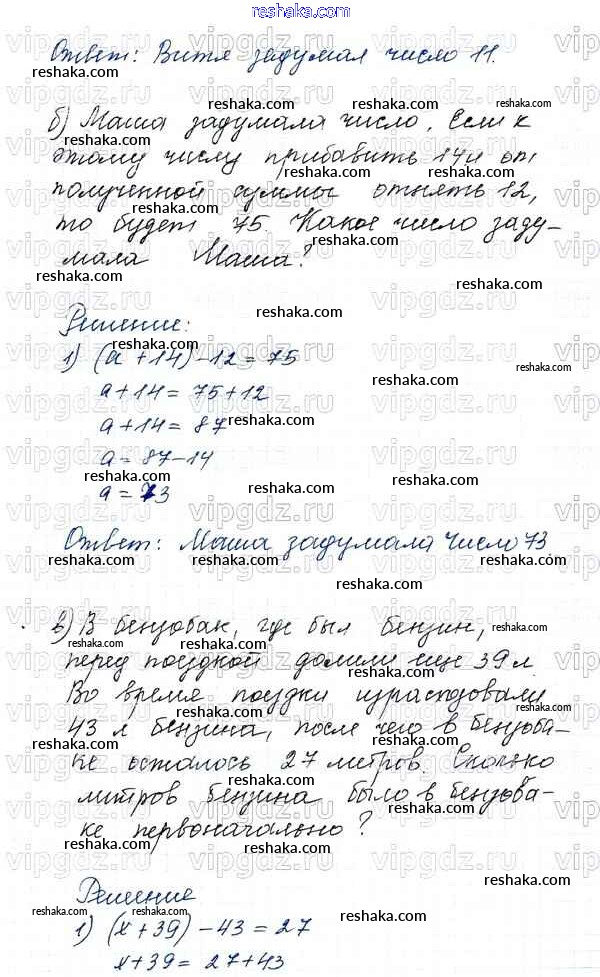 reshaka.com
Ответ: Витя задумал число 11.
б) Маша задумала число. Если к
этому числу прибавить 14 и от
полученной суммы отнять 12,
то будет 75. Какое число заду-
мала Маша?
Решение:
1) (a + 14) - 12 = 75
a + 14 = 75 + 12
a + 14 = 87
a = 87 - 14
a = 73
Ответ: Маша задумала число 73
в) В бензобак, где был бензин,
перед поездкой долили еще 39 л.
Во время поездки израсходовали
43 л бензина, после чего в бензоба-
ке осталось 27 литров. Сколько
литров бензина было в бензоба-
ке первоначально?
Решение
1) (x + 39) - 43 = 27
x + 39 = 27 + 43